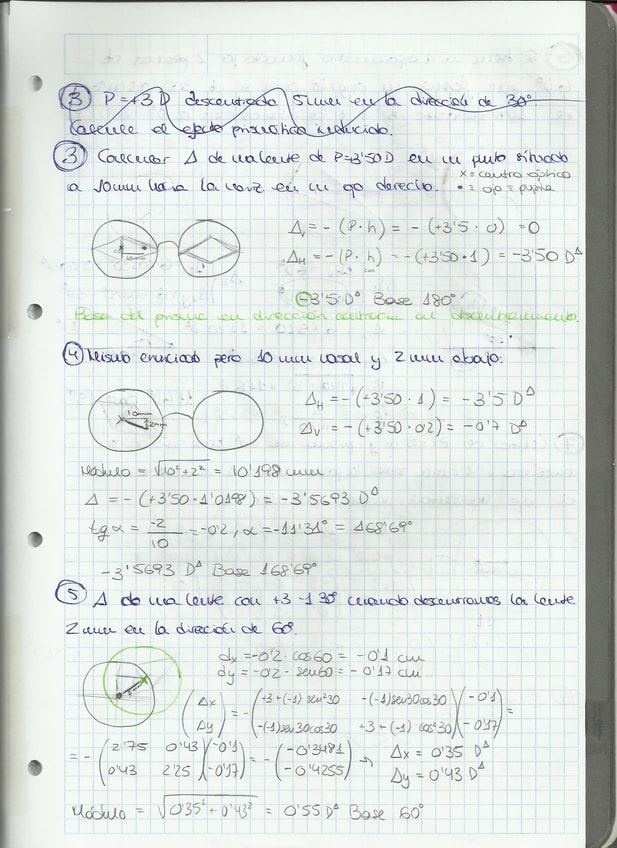 3 P=+3 D descentrada 5mm en la dirección de 30°
Calcule el efecto prismático inducido.
3 Calcular Δ de una lente de P=+3'50 D en un punto situado
a 10mm hacia la nariz en un ojo derecho.
x = centro óptico
• = ojo = pupila
10mm
Δv = - (P · h) = - (+3'5 · 0) = 0
ΔH = - (P · h) = - (+3'50 · 1) = -3'50 DΔ
cm
-3'5 DΔ Base 180°
Base del prisma en dirección contraria al descentramiento.
4 Mismo enunciado pero 10 mm nasal y 2 mm abajo.
10mm
2mm
ΔH = - (+3'50 · 1) = -3'5 DΔ
ΔV = - (+3'50 · 02) = -0'7 DΔ
Módulo = √10²+2² = 10'198 mm
Δ = - (+3'50 · 1'0198) = -3'5693 DΔ
tg α = -2/10 = -0'2, α = -11'31° = 168'69°
-3'5693 DΔ Base 168'69°
5 Δ de una lente con +3 -1 30° cuando descentramos la lente
2mm en la dirección de 60°.
dx = -0'2 · cos60 = -0'1 cm
dy = -0'2 · sen60 = -0'17 cm
(Δx Δy) = - (+3+(-1) sen²30 -(-1)sen30cos30
-(-1)sen30cos30 +3+(-1) cos²30) (-0'1 -0'17) =
= - (2'75 0'43 0'43 2'25) (-0'1 -0'17) = - (-0'3481 -0'4255) → Δx = 0'35 DΔ
Δy = 0'43 DΔ
Módulo = √0'35² + 0'43² = 0'55 DΔ Base 60°